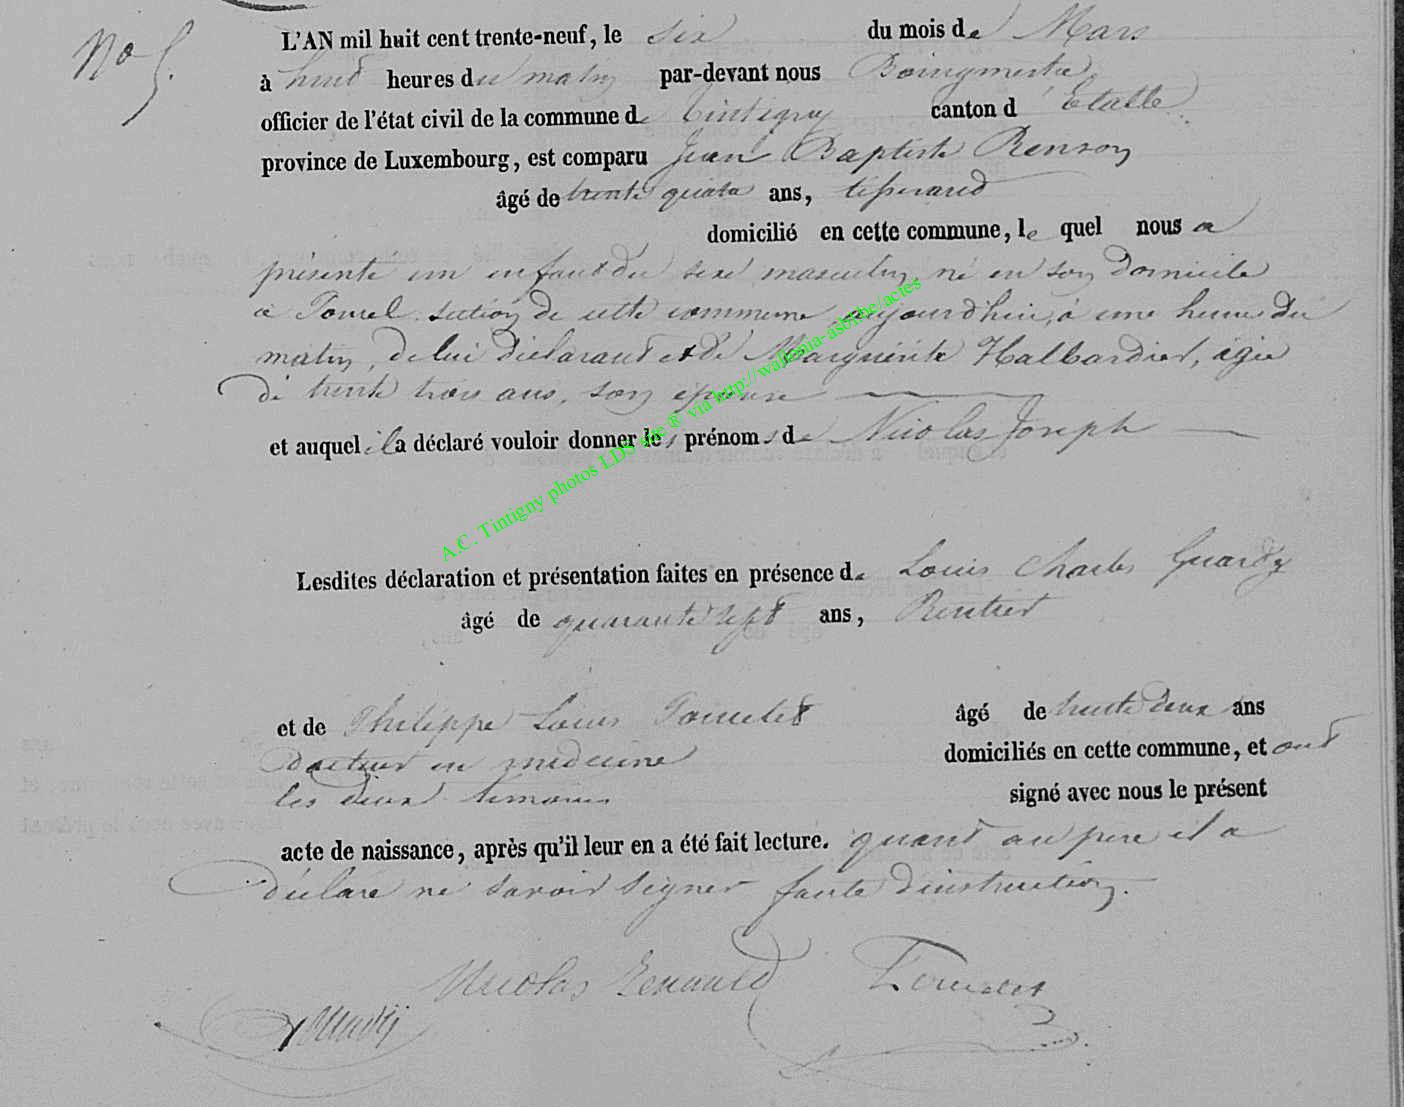 No 5.
L'AN mil huit cent trente-neuf, le six du mois de Mars
à huit heures du matin par-devant nous Bourgmestre
officier de l'état civil de la commune de Tintigny canton d'Etalle
province de Luxembourg, est comparu Jean Baptiste Renson
âgé de trente quatre ans, tisserand
domicilié en cette commune, le quel nous a
présenté un enfant du sexe masculin, né en son domicile
à section de cette commune aujourd'hui, à une heure du
matin, de lui déclarant et de Marguerite Halbardier, agée
de trente trois ans, son épouse
et auquel il a déclaré vouloir donner les prénoms de Nicolas Joseph
Lesdites déclaration et présentation faites en présence de Louis Charles
âgé de quarante sept ans, Rentier
et de Philippe Louis âgé de trente deux ans
docteur en médecine domiciliés en cette commune, et ont
les deux témoins signé avec nous le présent
acte de naissance, après qu'il leur en a été fait lecture. quant au père il a
déclaré ne savoir signer faute d'instruction.
Nicolas Renauld
A.C. Tintigny photos LDS site ® via http://wallonia-asbl.be/actes